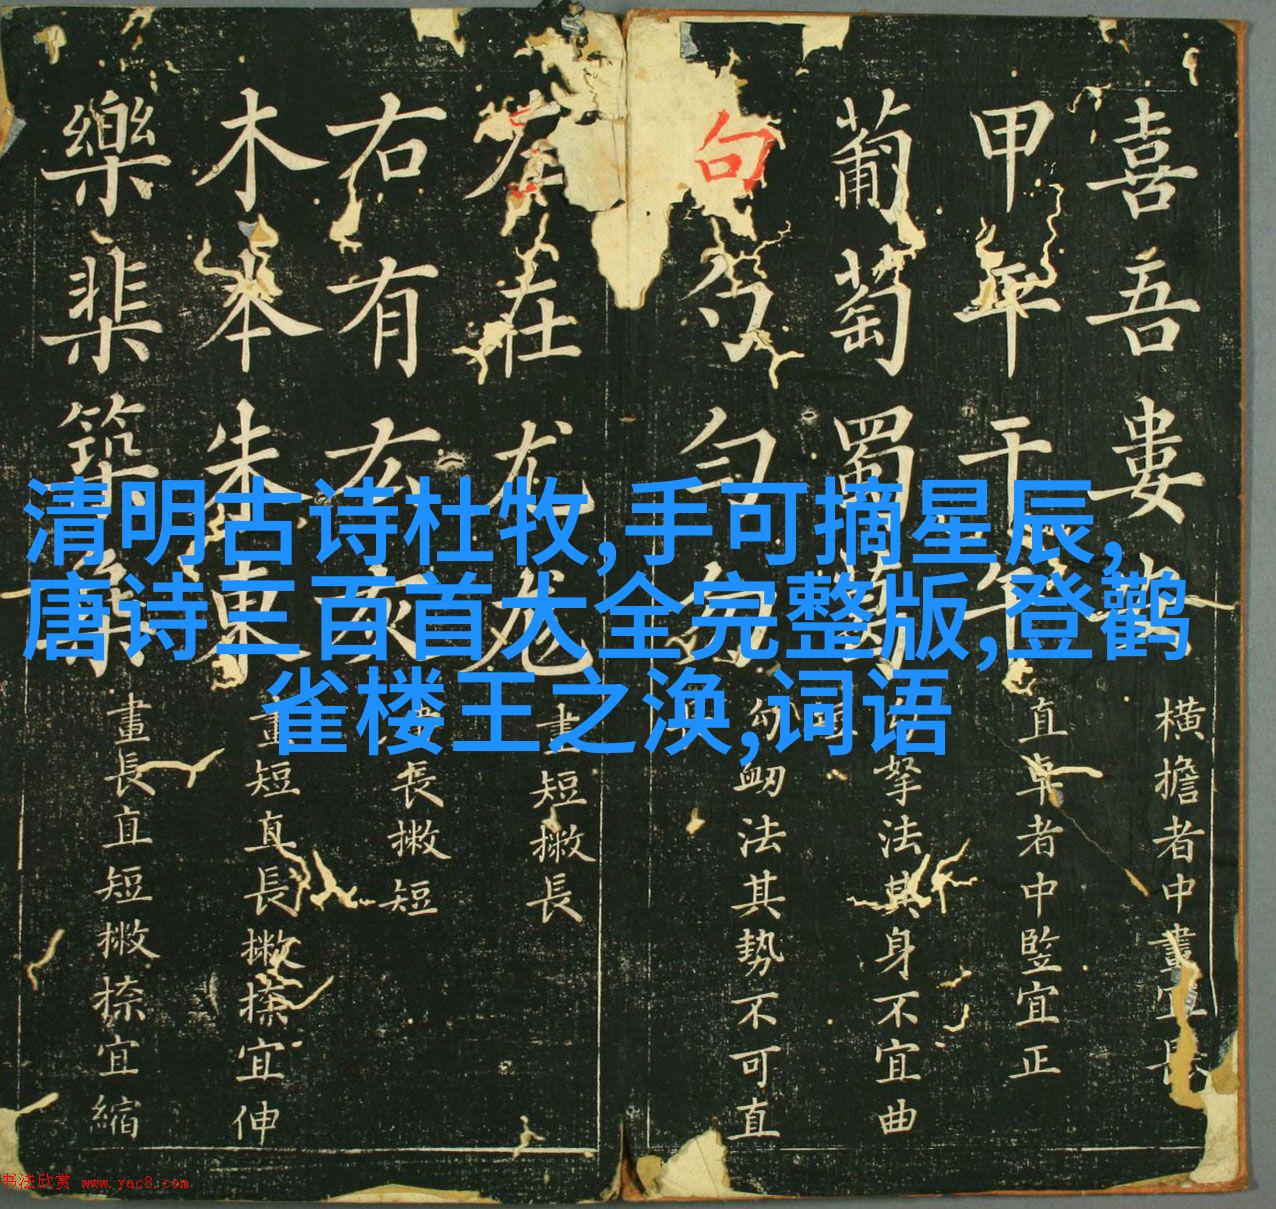 喜吾婁
橫擔者中畫宜長
甲平干午
直卓者中竪宜正
葡萄蜀
拏法其身不宜曲
句勺勻勿
法其势不可直
左在尤尨
畫短撇長
右有
畫長撇短
木本朱東
畫短直長撇捺宜伸
樂棐築
畫長直短撇捺宜縮
清明古诗杜牧,手可摘星辰,
唐诗三百首大全完整版,登鹳
雀楼王之涣,词语
书法欣赏 www.yac8.com